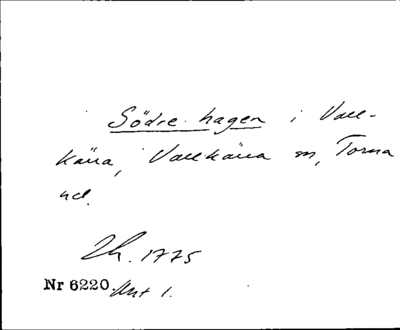 Södre hagen i Vall-
kärra, Vallkärra sn, Torna
hd.
1775
Nr 6220. Akt 1.